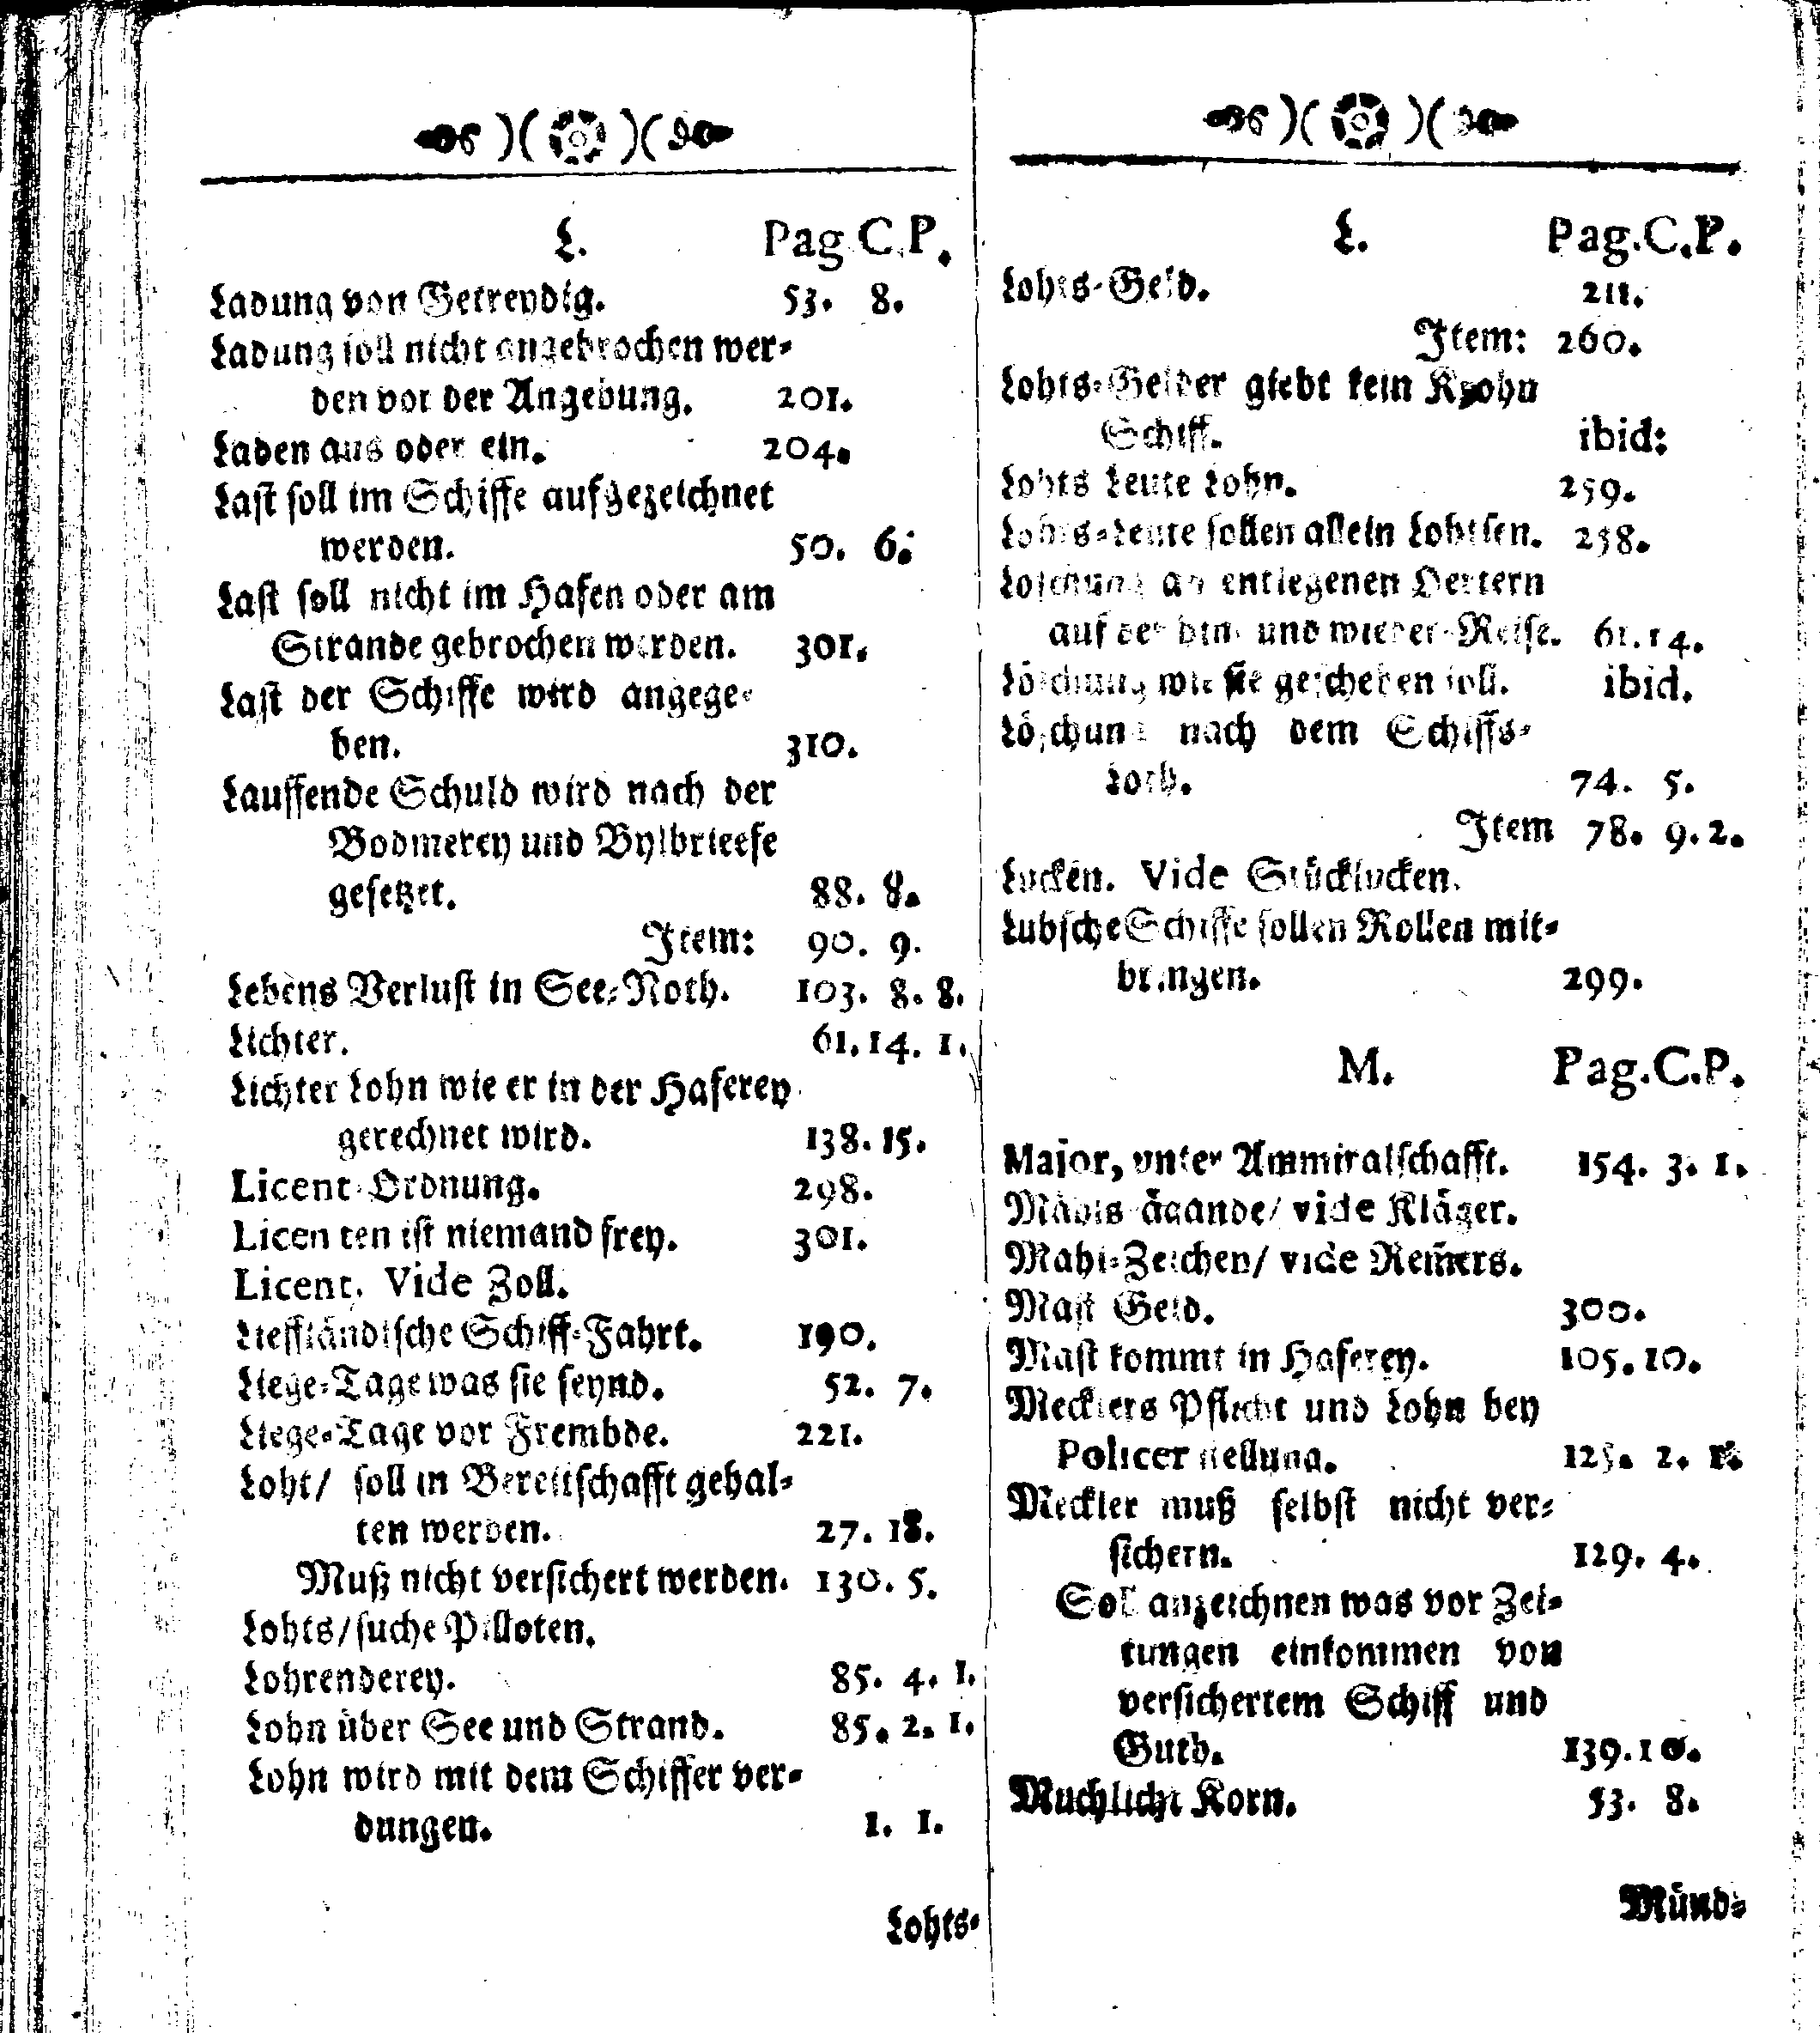 L. Pag C.P.
Ladung von Getreydig. 53. 8.
Ladung soll nicht angebrochen wer-
den vor der Angebung. 201.
Laden aus oder ein. 204.
Last soll im Schiffe aufgezeichnet
werden. 50. 6.
Last soll nicht im Hafen oder am
Strande gebrochen werden. 301.
Last der Schiffe wird angege-
ben. 310.
Lauffende Schuld wird nach der
Bodmerey und Bylbrieefe
gesetzet. 88. 8.
Item: 90. 9.
Lebens Verlust in See-Noth. 103. 8. 8.
Lichter. 61. 14. 1.
Lichter Lohn wie er in der Haferey
gerechnet wird. 138. 15.
Licent-Ordnung. 298.
Licenten ist niemand frey. 301.
Licent. Vide Zoll.
Lieffländische Schiff-Fahrt. 190.
Liege-Tage was sie seynd. 52. 7.
Liege-Tage vor Frembde. 221.
Loht/ soll in Bereitschafft gehal-
ten werden. 27. 18.
Muß nicht versichert werden. 130. 5.
Lohts/ suche Pilloten.
Lohrenderey. 85. 4. 1.
Lohn über See und Strand. 85. 2. 1.
Lohn wird mit dem Schiffer ver-
dungen. 1. 1.
Lohts-
L. Pag.C.P.
Lohts-Geld. 211.
Item: 260.
Lohts-Gelder giebt kein Krohn
Schiff. ibid:
Lohts Leute Lohn. 259.
Lohts-Leute sollen allein Lohtsen. 258.
Loschung an entlegenen Oertern
auf der hin- und wieder-Reise. 61. 14.
Löschung wie sie geschehen soll. ibid.
Löschung nach dem Schiffs-
Loth. 74. 5.
Item 78. 9. 2.
Lucken. Vide Stücklucken.
Lubsche Schiffe sollen Rollen mit-
bringen. 299.
M. Pag.C.P.
Major, unter Ammiralschafft. 154. 3. 1.
Måhls ägande/ vide Kläger.
Mahl-Zeichen/ vide Remers.
Mast Geld. 300.
Mast kommt in Haferey. 105. 10.
Mecklers Pflicht und Lohn bey
Policer stellung. 125. 2. 1.
Meckler muß selbst nicht ver-
sichern. 129. 4.
Soll anzeichnen was vor Zei-
tungen einkommen von
versichertem Schiff und
Guth. 139. 16.
Muchlicht Korn. 53. 8.
Münd-